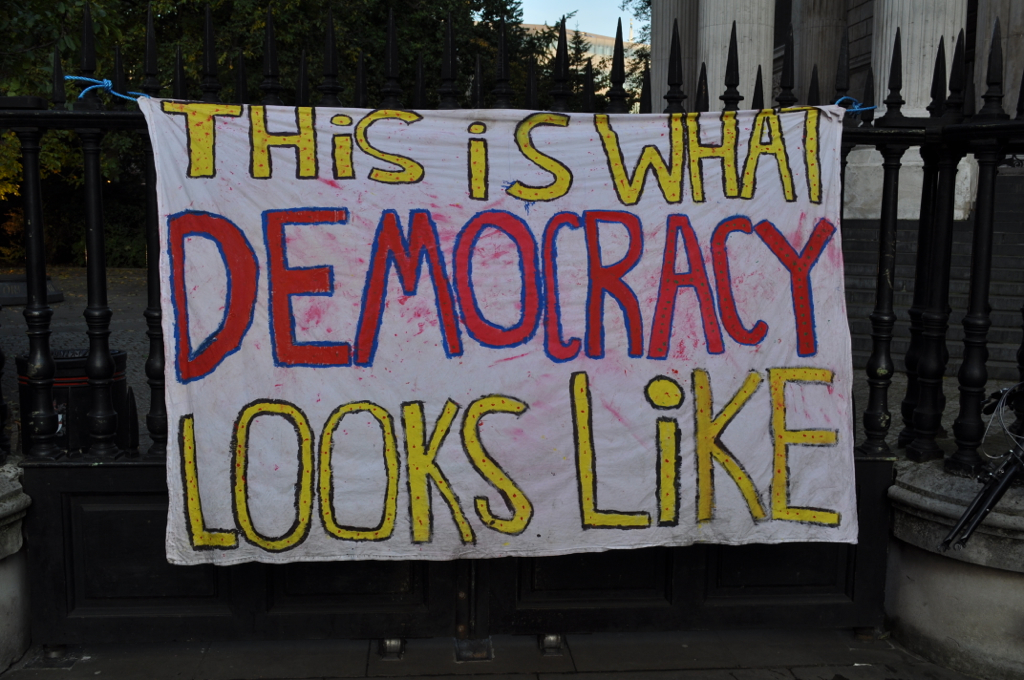 THiS iS WHAT
DEMOCRACY
LOOKS LiKE